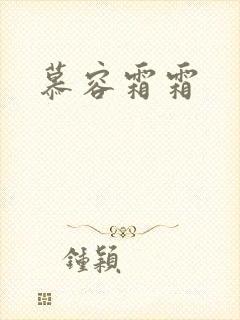 慕容霜霜
鍾穎